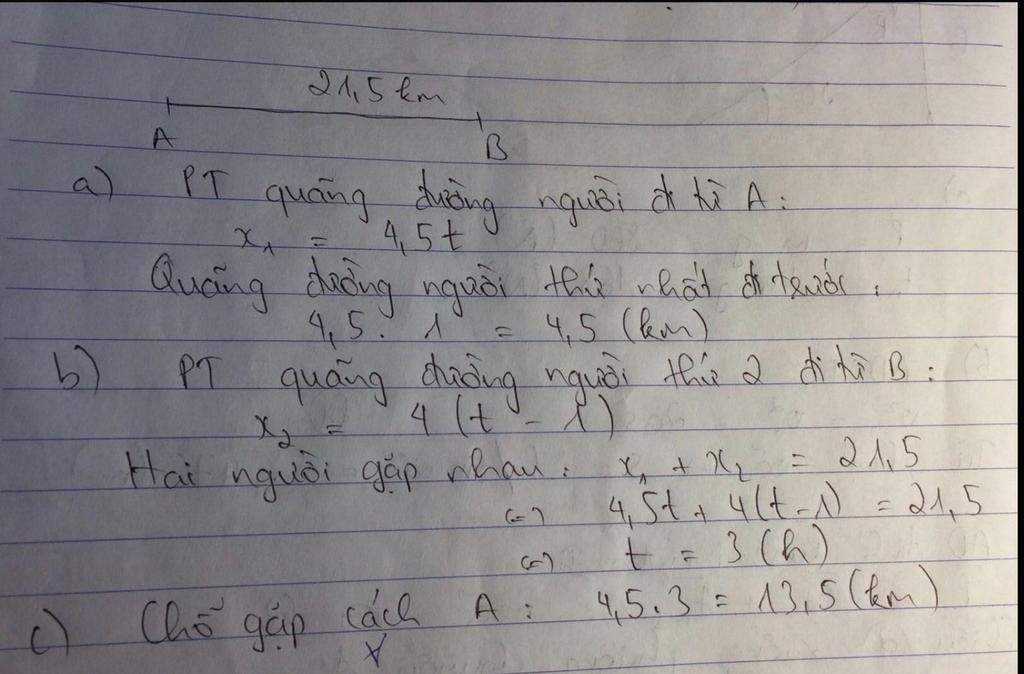 21,5 km
A B
a) PT quãng đường người đi từ A:
x₁ = 4,5t
Quãng đường người thứ nhất đi trước:
4,5. 1 = 4,5 (km)
b) PT quãng đường người thứ 2 đi từ B:
x₂ = 4(t - 1)
Hai người gặp nhau: x₁ + x₂ = 21,5
(=) 4,5t + 4(t-1) = 21,5
(=) t = 3 (h)
c) Chỗ gặp cách A: 4,5.3 = 13,5(km)